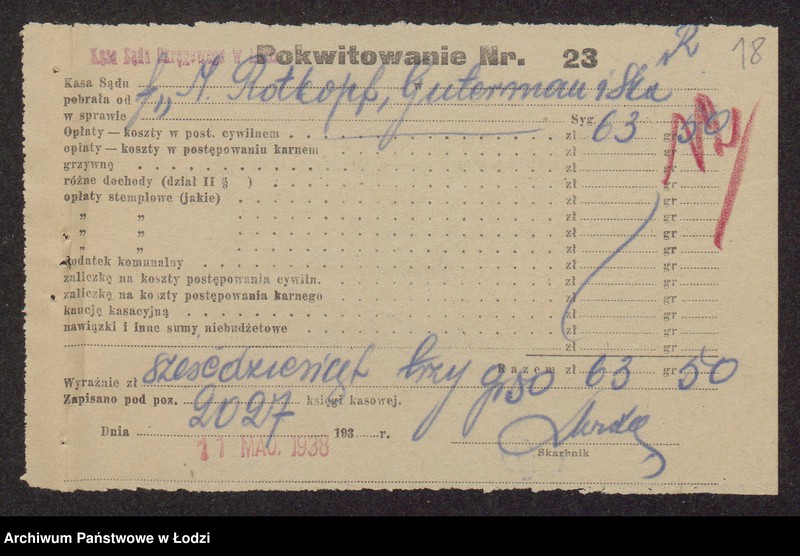 Kasa Sądu Okręgowego w Łodzi
Pokwitowanie Nr. 23
18
R
Kasa Sądu w
pobrała od f„ M. Rotkopf, Guterman i Ska"
w sprawie Syg.
Opłaty — koszty w post. cywilnem zł 63 gr 50
opłaty — koszty w postępowaniu karnem zł gr
grzywnę zł gr
różne dochody (dział II § ) zł gr
opłaty stemplowe (jakie) zł gr
„ „ zł gr
„ „ zł gr
„ „ zł gr
dodatek komunalny zł gr
zaliczkę na koszty postępowania cywiln. zł gr
zaliczkę na koszty postępowania karnego zł gr
kaucję kasacyjną zł gr
nawiązki i inne sumy niebudżetowe zł gr
zł gr
Razem zł 63 gr 50
Wyraźnie zł sześćdziesiąt trzy g 50
Zapisano pod poz. 2027 księgi kasowej.
Dnia 11 MAJ. 1938 193 r.
Skarbnik
Archiwum Państwowe w Łodzi